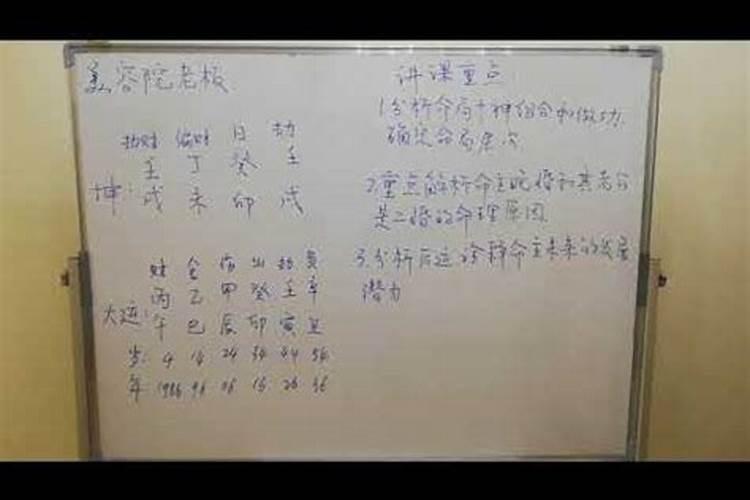 美容院老板
劫财 偏财 日 劫
壬 丁 癸 壬
坤: 戌 未 卯 戌
财 食 伤 比 劫 枭
丙 乙 甲 癸 壬 辛
大运: 午 巳 辰 卯 寅 丑
岁: 4 14 24 34 44 54
年: 1986 96 06 16 26 36
讲课重点
1.分析命局十神组合和做功,
确定命局层次
2.重点解析命主晚婚和其老公
是二婚的命理原因
3.分析后运 诠释命主未来的发展
潜力